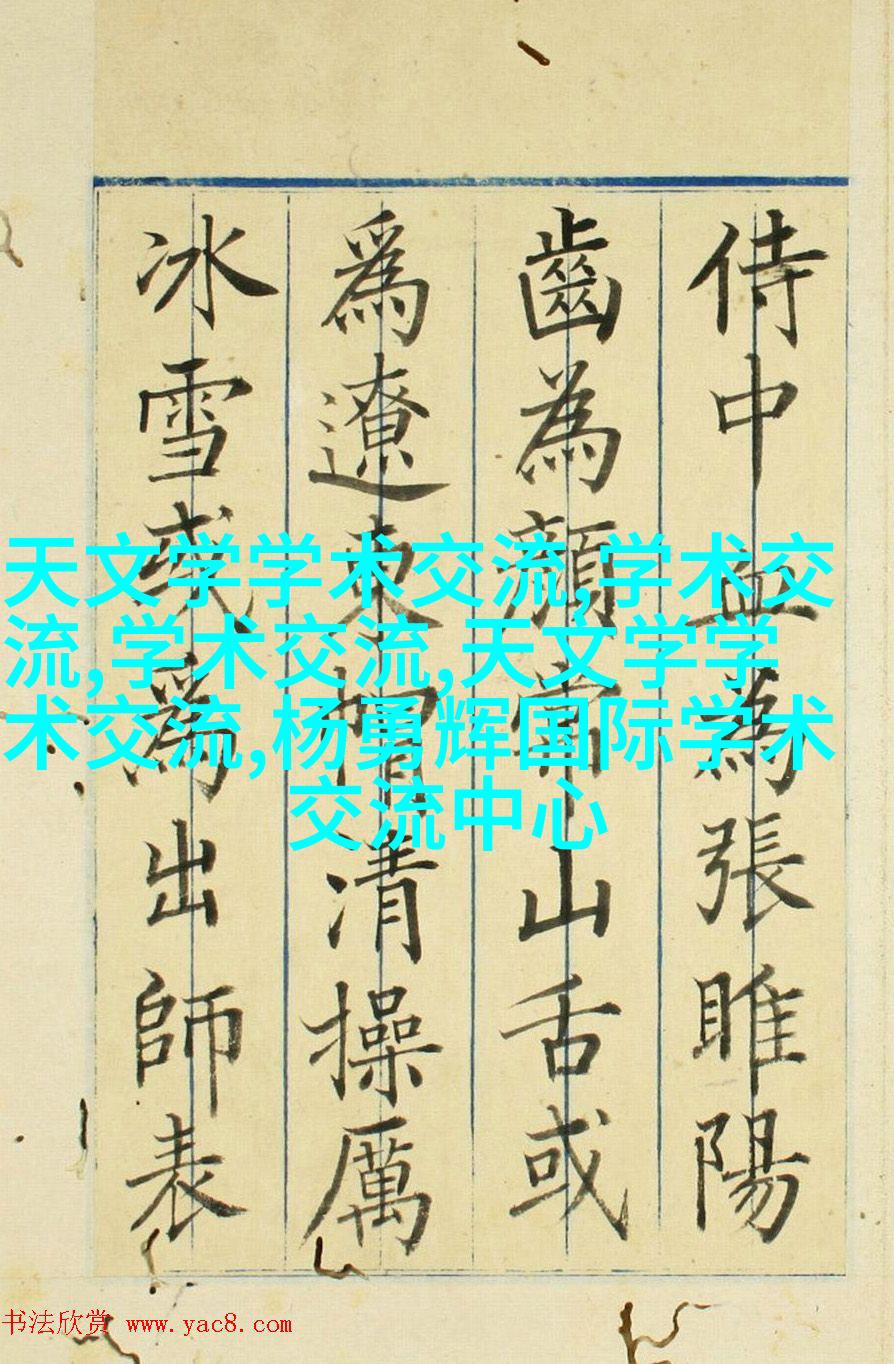 侍中血為張睢陽
齒為顏常山舌或
爲遼東帽清操厲
冰雪或爲出師表
天文学学术交流,学术交
流,学术交流,天文学学
术交流,杨勇辉国际学术
交流中心
书法欣赏 www.yac8.com